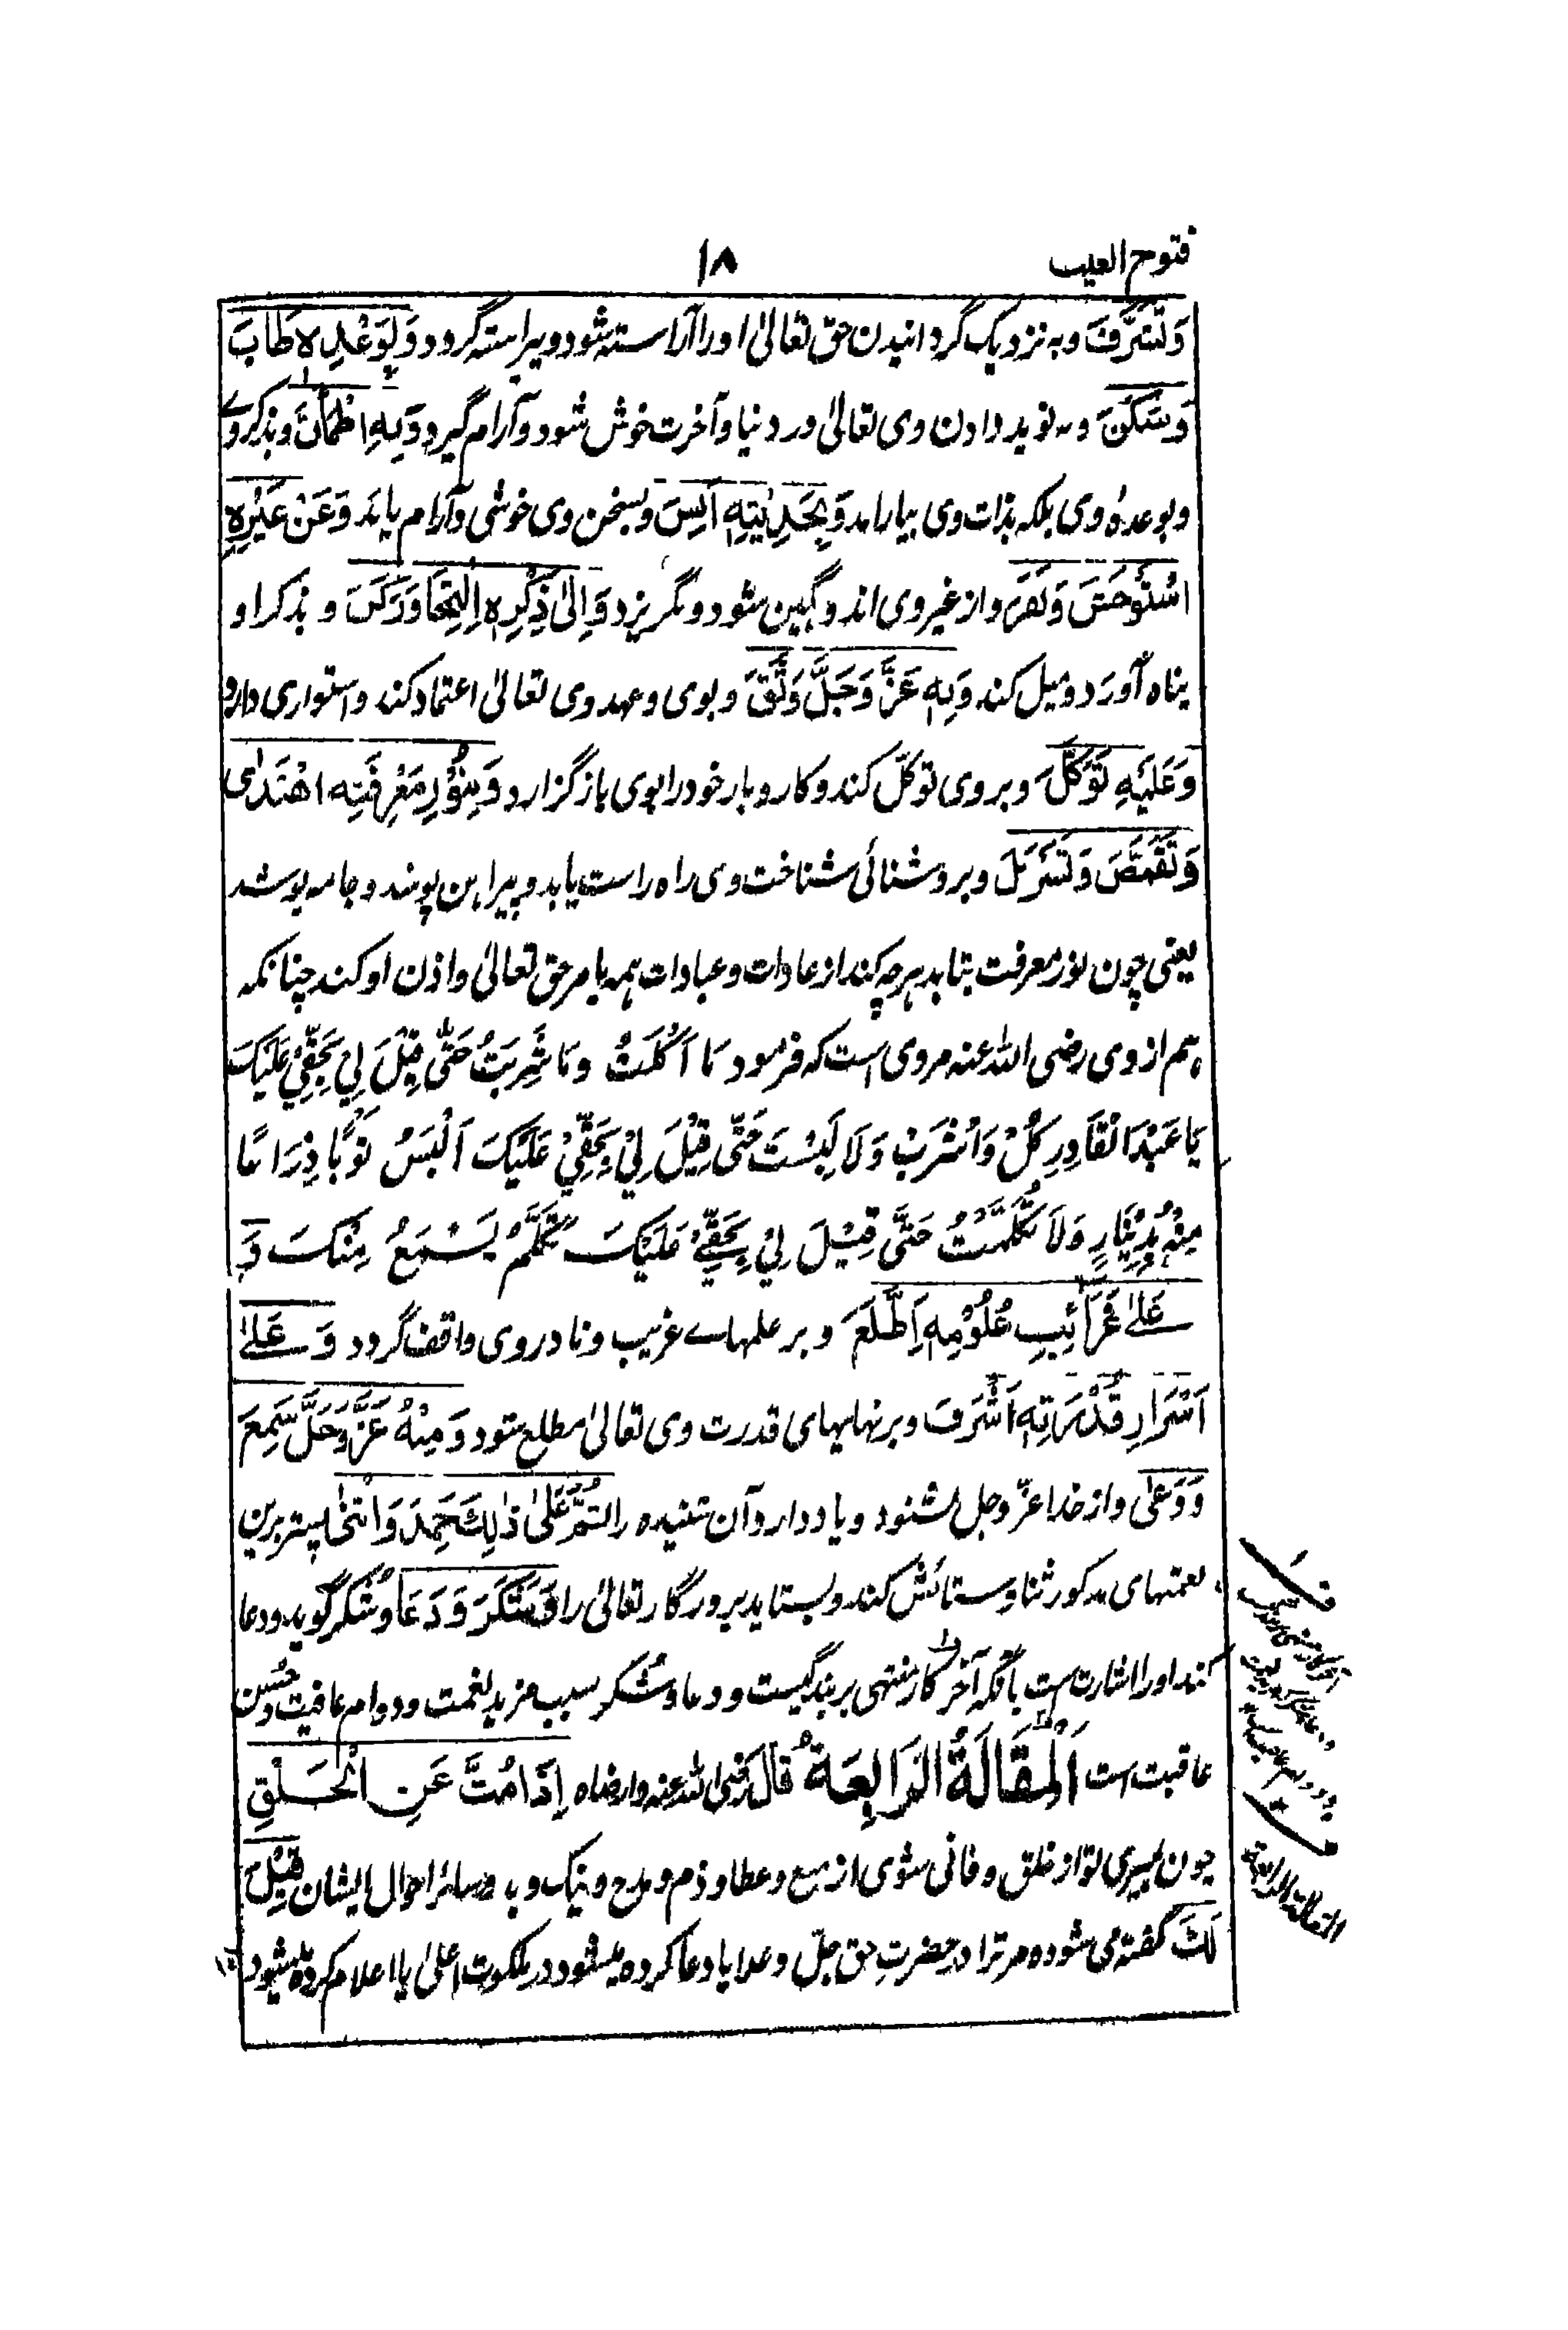 فتوح الغیب
۱۸
وَتَشَرَّفَ و به نزدیک گردانیدن حق تعالیٰ او را آراسته شود و پیراسته گردد وَبِوَعْدِهٖ طَابَ
وَسَكَنَ و به نوید دادن وی تعالیٰ در دنیا و آخرت خوش شود و آرام گیرد وَبِهٖ اطْمَأَنَّ و بذکر وے
و بوعدهٔ وی بلکه بذات وی بیارامد وَبِحَدِیْثِهٖ اَنِسَ و بسخن وی خوشی و آرام یابد وَعَنْ غَیْرِهٖ
اسْتَوْحَشَ وَنَفَرَ و از غیر وی اندوهگین شود و بگریزد وَاِلٰی ذِكْرِهٖ اِلْتَجَا وَرَكَنَ و بذکر او
پناه آورد و میل کند وَبِهٖ عَزَّ وَجَلَّ وَثَّقَ و بوی و عهد وی تعالیٰ اعتماد کند و استواری دارد
وَعَلَیْهِ تَوَكَّلَ و بر وی توکل کند و کاروبار خود را بوی باز گزارد وَبِنُوْرِ مَعْرِفَتِهٖ اهْتَدٰی
وَتَقَمَّصَ وَتَسَرْبَلَ و بروشنائی شناخت وی راه راست یابد و پیراهن پوشد و جامه پوشد
یعنی چون نور معرفت بتابد هرچه کند از عادات و عبادات همه بامر حق تعالیٰ و اذن او کند چنانکه
هم از وی رضی الله عنه مروی است که فرمود مَا اَكَلْتُ وَمَا شَرِبْتُ حَتّٰی قِیْلَ لِیْ بِحَقِّیْ عَلَیْكَ
یَا عَبْدَ الْقَادِرِ كُلْ وَاشْرَبْ وَلَا لَبِسْتُ حَتّٰی قِیْلَ لِیْ بِحَقِّیْ عَلَیْكَ اَلْبَسْ ثَوْبًا ذِرَاعًا
مِنْهُ بِدِیْنَارٍ وَلَا تَكَلَّمْتُ حَتّٰی قِیْلَ لِیْ بِحَقِّیْ عَلَیْكَ تَكَلَّمْ یَسْمَعُ مِنْكَ وَ
عَلٰی غَرَائِبِ عُلُوْمِهٖ اِطَّلَعَ و بر علمهاے غریب و نادر وی واقف گردد وَعَلٰی
اَسْرَارِ قُدْرَتِهٖ اَشْرَفَ و بر نهانیهای قدرت وی تعالیٰ مطلع شود وَمِنْهُ عَزَّ وَجَلَّ سَمِعَ
وَوَعٰی و از خدا عزّ وجل بشنود و یاد دارد آن شنیده را ثُمَّ عَلٰی ذٰلِكَ حَمِدَ وَاثْنٰی پستر برین
نعمتهای مذکور ثنا و ستائش کند و بستاید پروردگار تعالیٰ را وَشَكَرَ وَدَعَا و شکر گوید و دعا
کند او را اشارتست بآنکه آخر کار منتهی بر بندگیست و دعا و شکر سبب مزید نعمت و دوام عافیت و حسن
عاقبت است اَلْمَقَالَةُ الرَّابِعَةُ قَالَ رضی الله عنه وارضاه اِذَا مُتَّ عَنِ الْخَلْقِ
چون بمیری تو از خلق و فانی شوی از منع و عطا و ذم و مدح و نیک و بد و سائر احوال ایشان قِیْلَ
لَكَ گفته می شود مر ترا در حضرت حق جلّ و علا یا دعا کرده میشود در ملکوت اعلیٰ یا اعلام کرده میشود
المقالة الرابعة